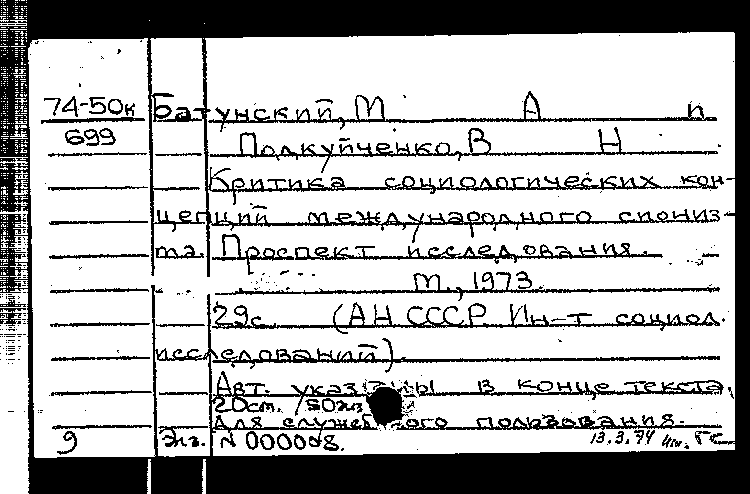 74-50к Батунский, М А и
699 Подкуйченко, В Н
Критика социологических кон-
цепций международного сиониз-
ма. Проспект исследования.
М., 1973.
29с. (АН СССР. Ин-т социол.
исследований).
Авт. указаны в конце текста.
20см. 150экз.
Для служебного пользования.
9 Экз. N 000008.
13.3.74